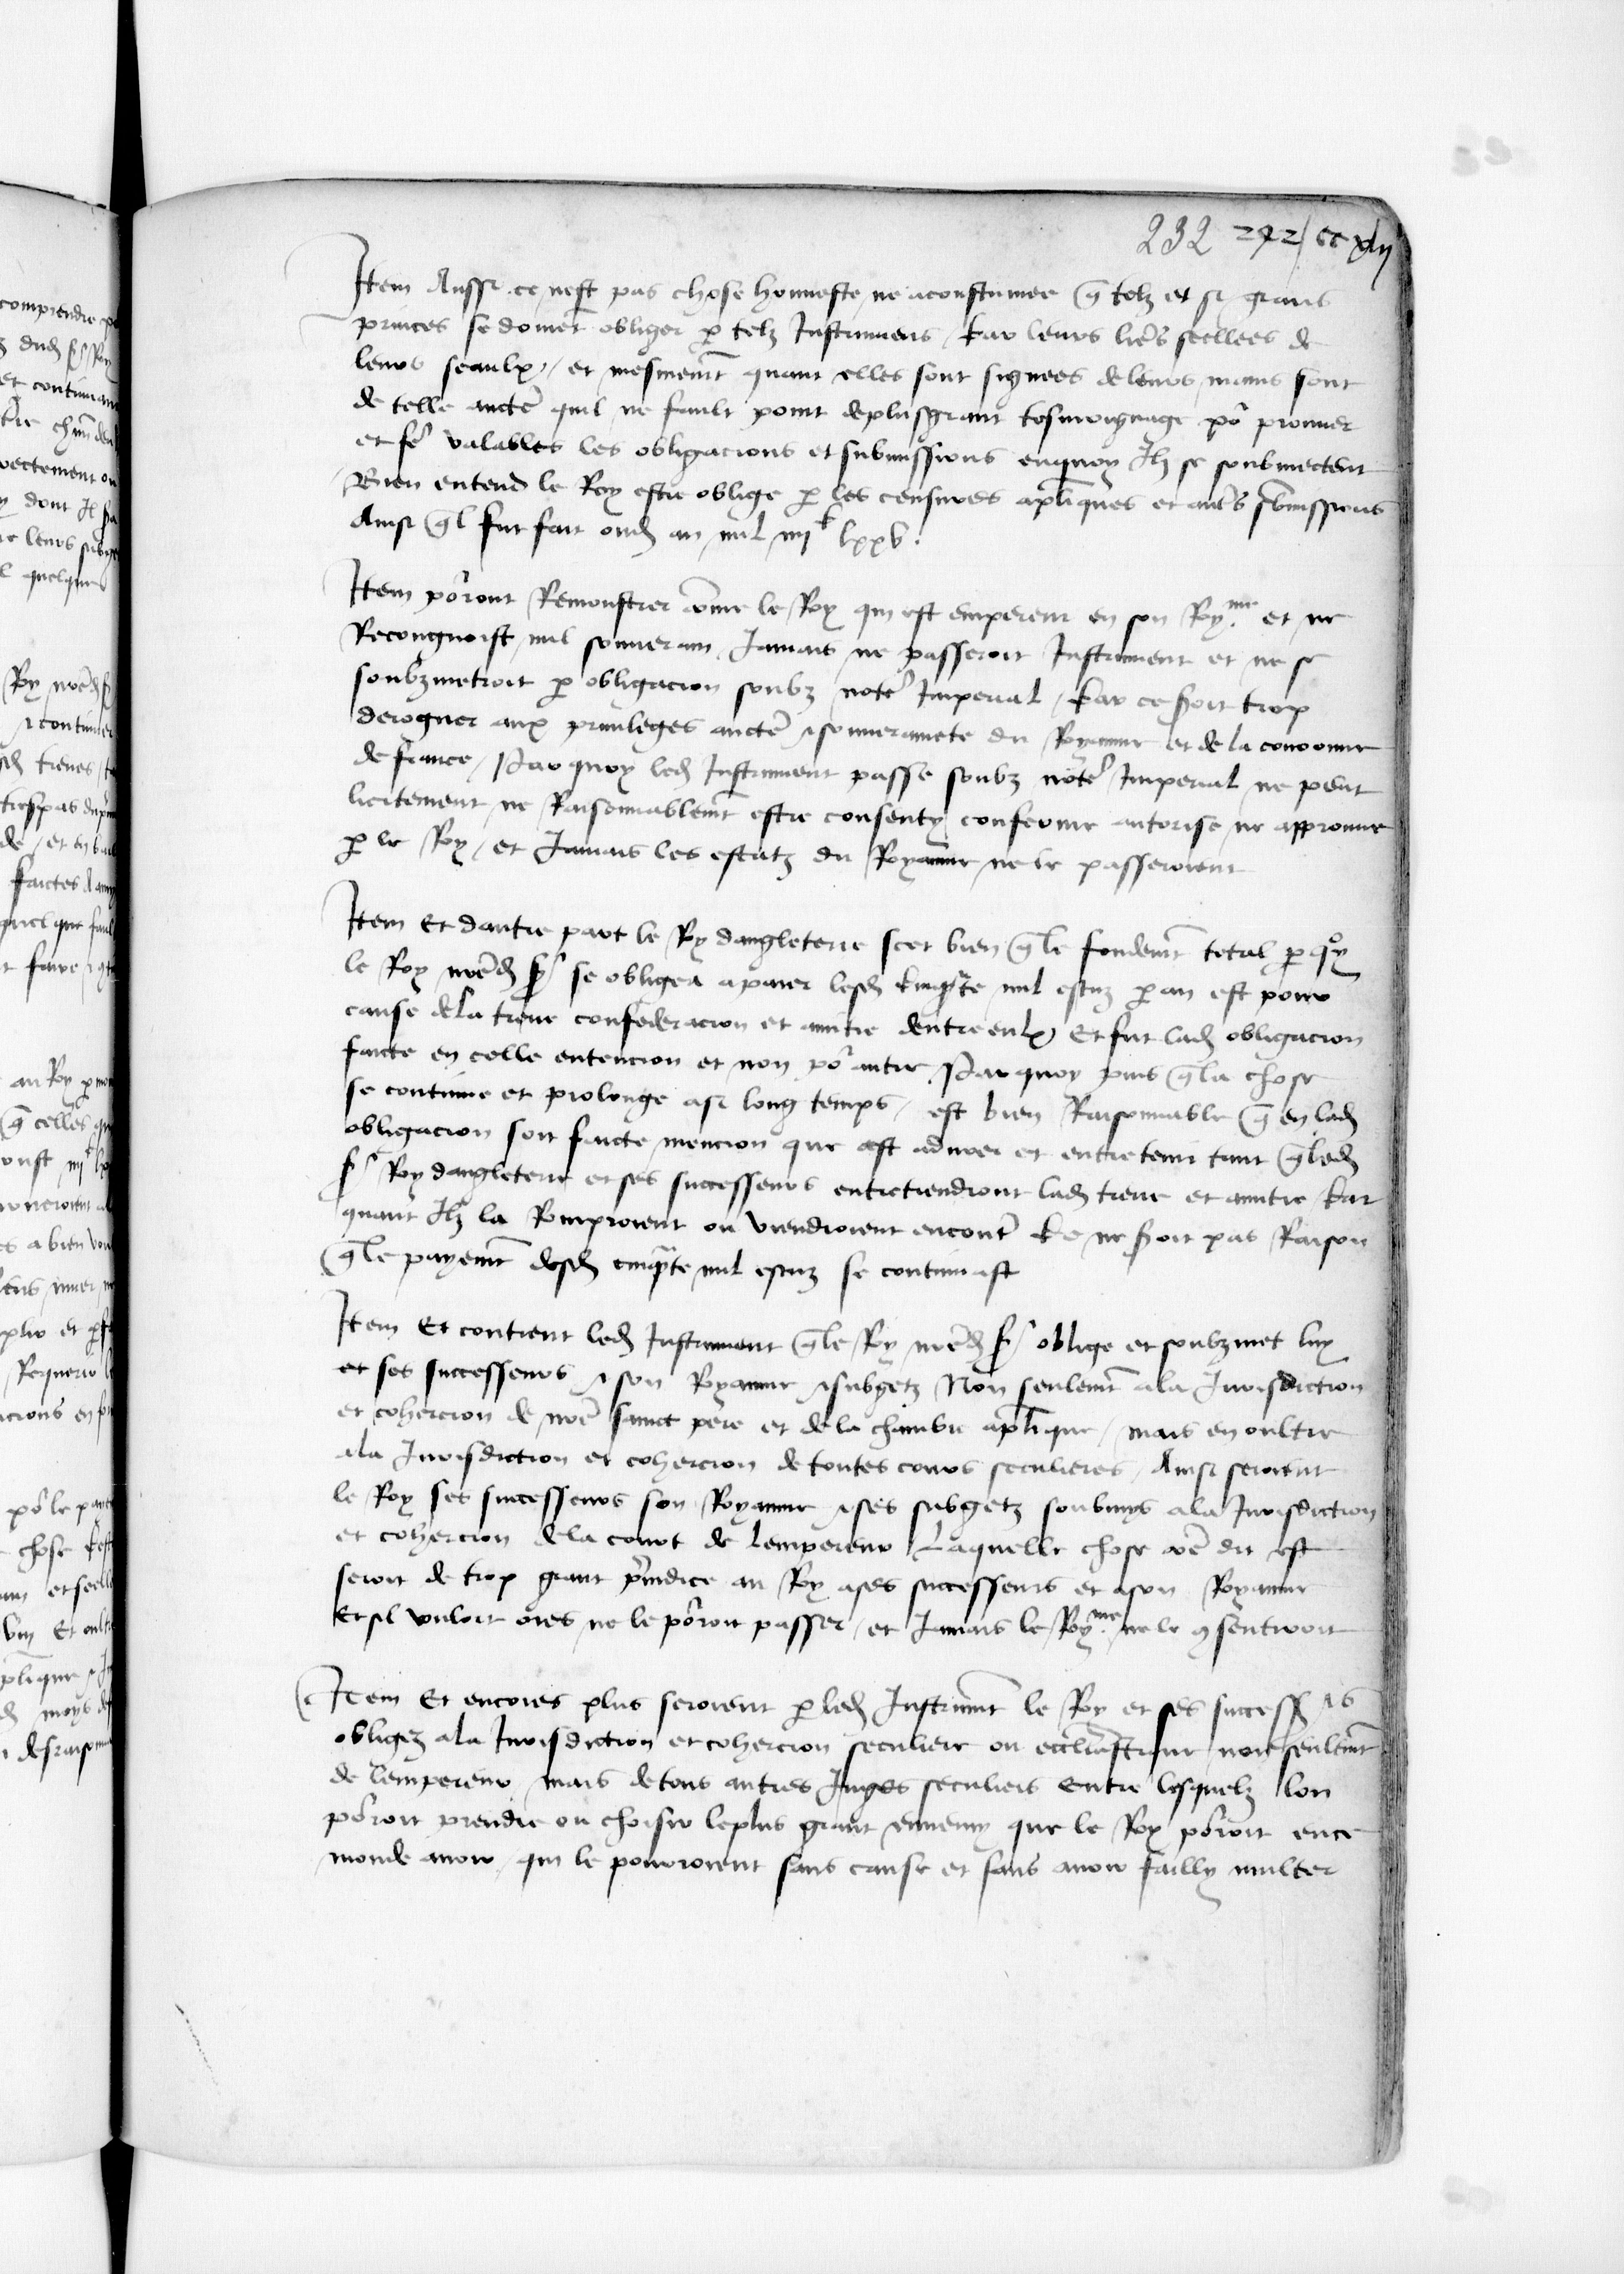 232 242 / CC xlij
Item Aussi ce nest pas chose honneste ne acoustumee q̃ telz et si grans
princes se doivēt obliger p̱ telz Instrumens / Car leurs lr̃es seellees de
leurs seaulx / et mesmem̃t quant elles sont signees de leurs mains sont
de telle auctẽ quil ne fault point de plus grant tesmoignage po͛ prouver
et fẽ valables les obligacions et submissions enquoy Ilz se soubmectent
Bien entend le Roy estre oblige p̱ les censures ap̃liques et autẽs submissions
Ainsi q̃l fut fait oud̃ an mil iiijᶜ lxxv.
Item po͛ront Remonstrer cõme le Roy qui est empereur en son Roy.ᵐᵉ et ne
Recongnoist nul souverain Iamais ne passeroit Instrument et ne se
soubzmetroit p̱ obligacion soubz notẽ Imperial / Car ce s͛oit trop
deroguer aux privileges auctẽ & souverainete du Royaume et de la couronne
de france / Parquoy led̃ Instrument passe soubz notẽ Imperial ne peut
licitement ne Raisonnablem̃t estre consenty conferme autorise ne approuve
p̱ le Roy / et Iamais les estatz du Royaume ne le passeroient
Item Et dautre part le Roy dangleterre scet bien q̃ le fondem̃t total p̱ quoy
le Roy nr̃ed̃ sr̃ se obligea a paier lesd̃ cinq̃te mil escuz p̱ an est pour
cause de la treve confederacion et amitie dentre eulx / Et fut lad̃ obligacion
faicte en celle entencion et non po͛ autre Parquoy puis q̃ la chose
se continue et prolonge a si long temps / est bien Raisonnable q̃ en lad̃
obligacion soit faicte mencion que est advoer et entretenir tant q̃ led̃
sr̃ Roy dangleterre et ses successeurs entretiendront lad̃ treve et amitie Car
quant Ilz la Romproient ou viendroient encontẽ Ce ne s͛oit pas Raison
q̃ le payem̃t desd̃ cinq̃te mil escuz se continuast
Item Et contient led̃ Instrument q̃ le Roy nr̃ed̃ sr̃ oblige et soubzmet luy
et ses successeurs & son Royaume & subgetz Non seulem̃t a la Iurisdiction
et cohercion de nr̃e sainct pere et de la chambre ap̃lique / mais en oultre
a la Iurisdiction et cohercion de toutes cours seculieres / Ainsi seroient
le Roy ses successeurs son Royaume & ses subgetz soubmys a la Iurisdiction
et cohercion de la court de lempereur Laquelle chose cõe dit est
seroit de trop grant p̃iudice au Roy a ses successeurs et a son Royaume
Et sil vouloit ores ne le po͛roit passer / et Iamais le Roy.ᵐᵉ ne le ꝯsentiroit
Item Et encores plus seroient p̱ led̃ Instrum̃t le Roy et ses success͛s
obligez a la Iurisdiction et cohercion seculiere ou eccl̃iastique non seulem̃t
de lempereur mais de tous autres Iuges seculiers entre lesquelz lon
po͛roit prendre ou choisir le plus grant ennemy que le Roy po͛roit en ce
monde avoir / qui le pourroient sans cause et sans avoir failly multer